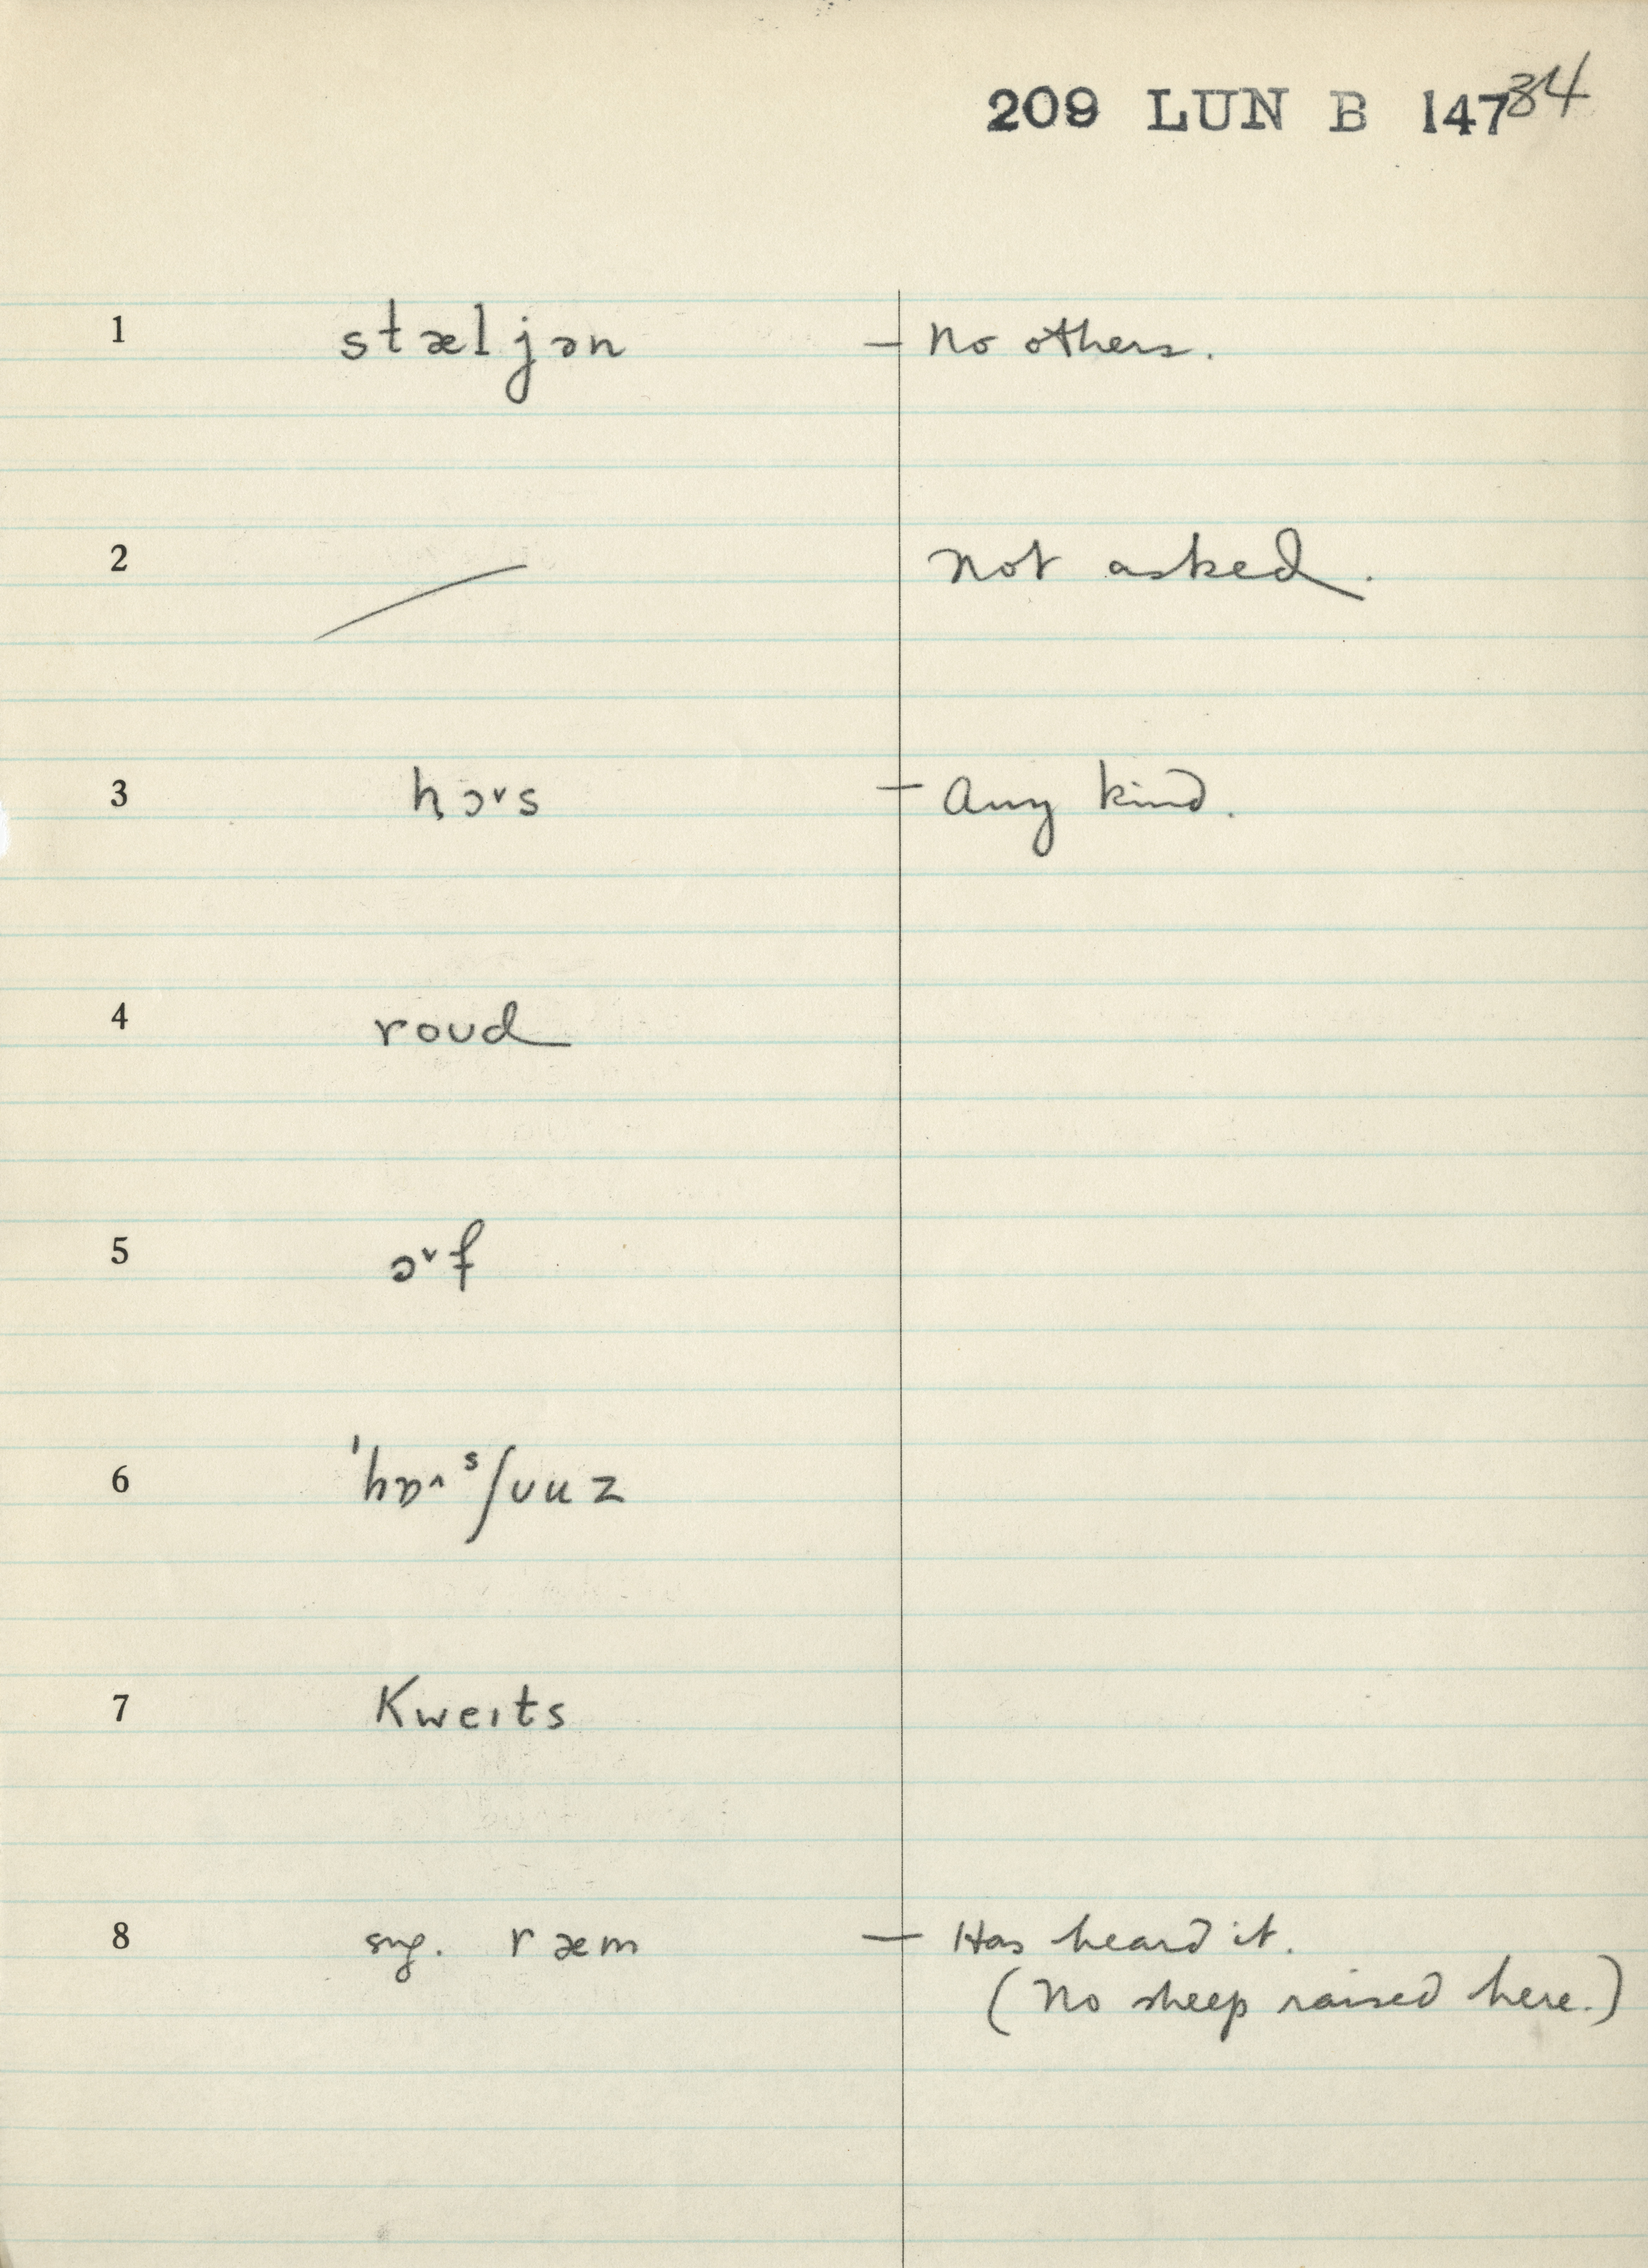 209 LUN B 147 34
1 stæljən — No others.
2 Not asked.
3 hɔ˅s — Any kind.
4 roʊd
5 ɔ˅f
6 ˈhɒ˄ˢʃuuz
7 Kweɪts
8 sug. ræm — Has heard it.
(No sheep raised here.)